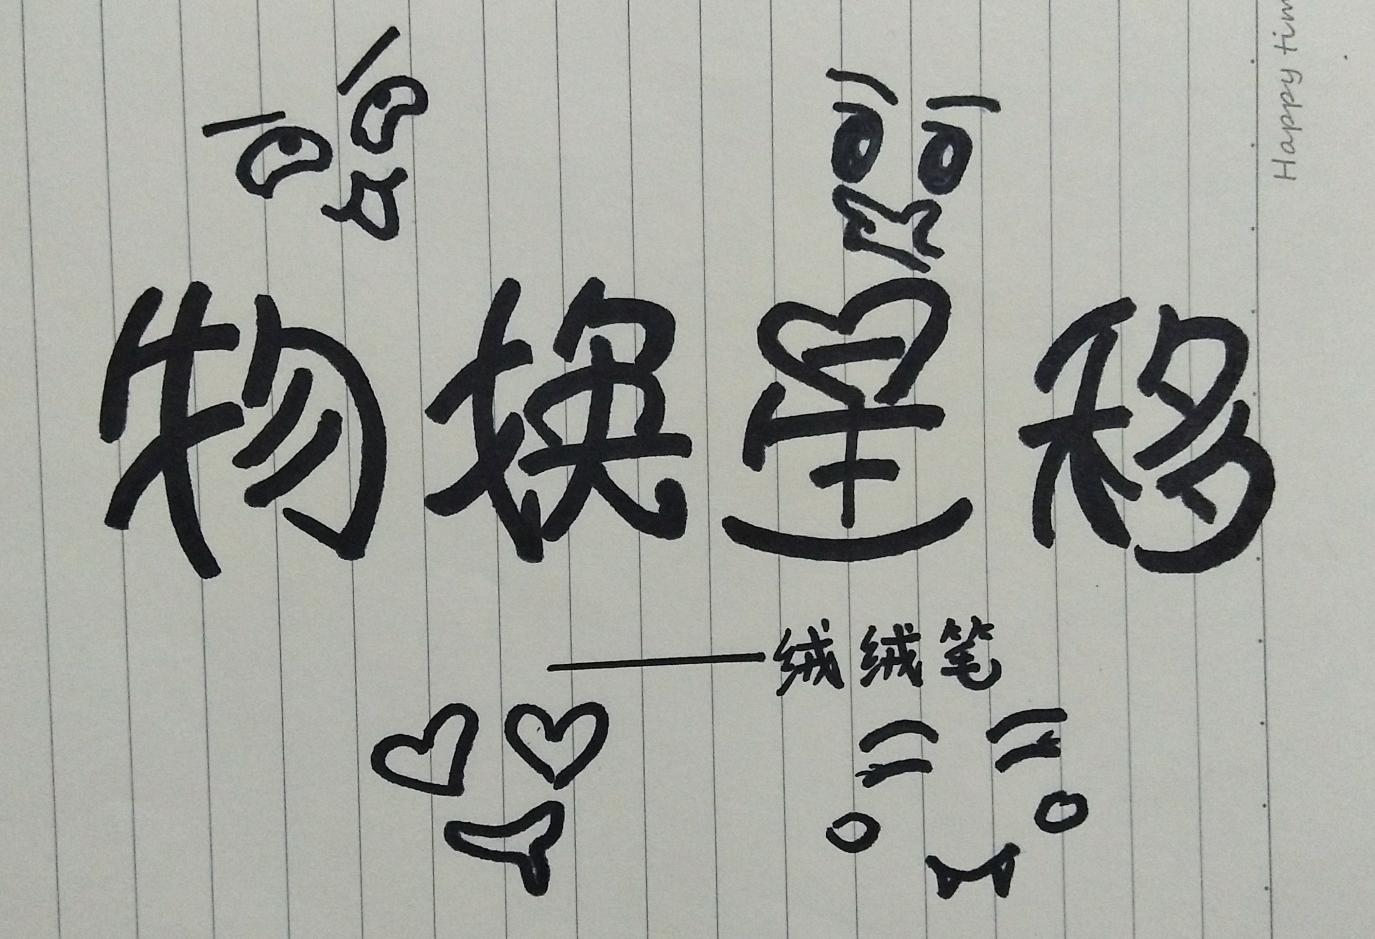 Happy
物换星移
——绒绒笔